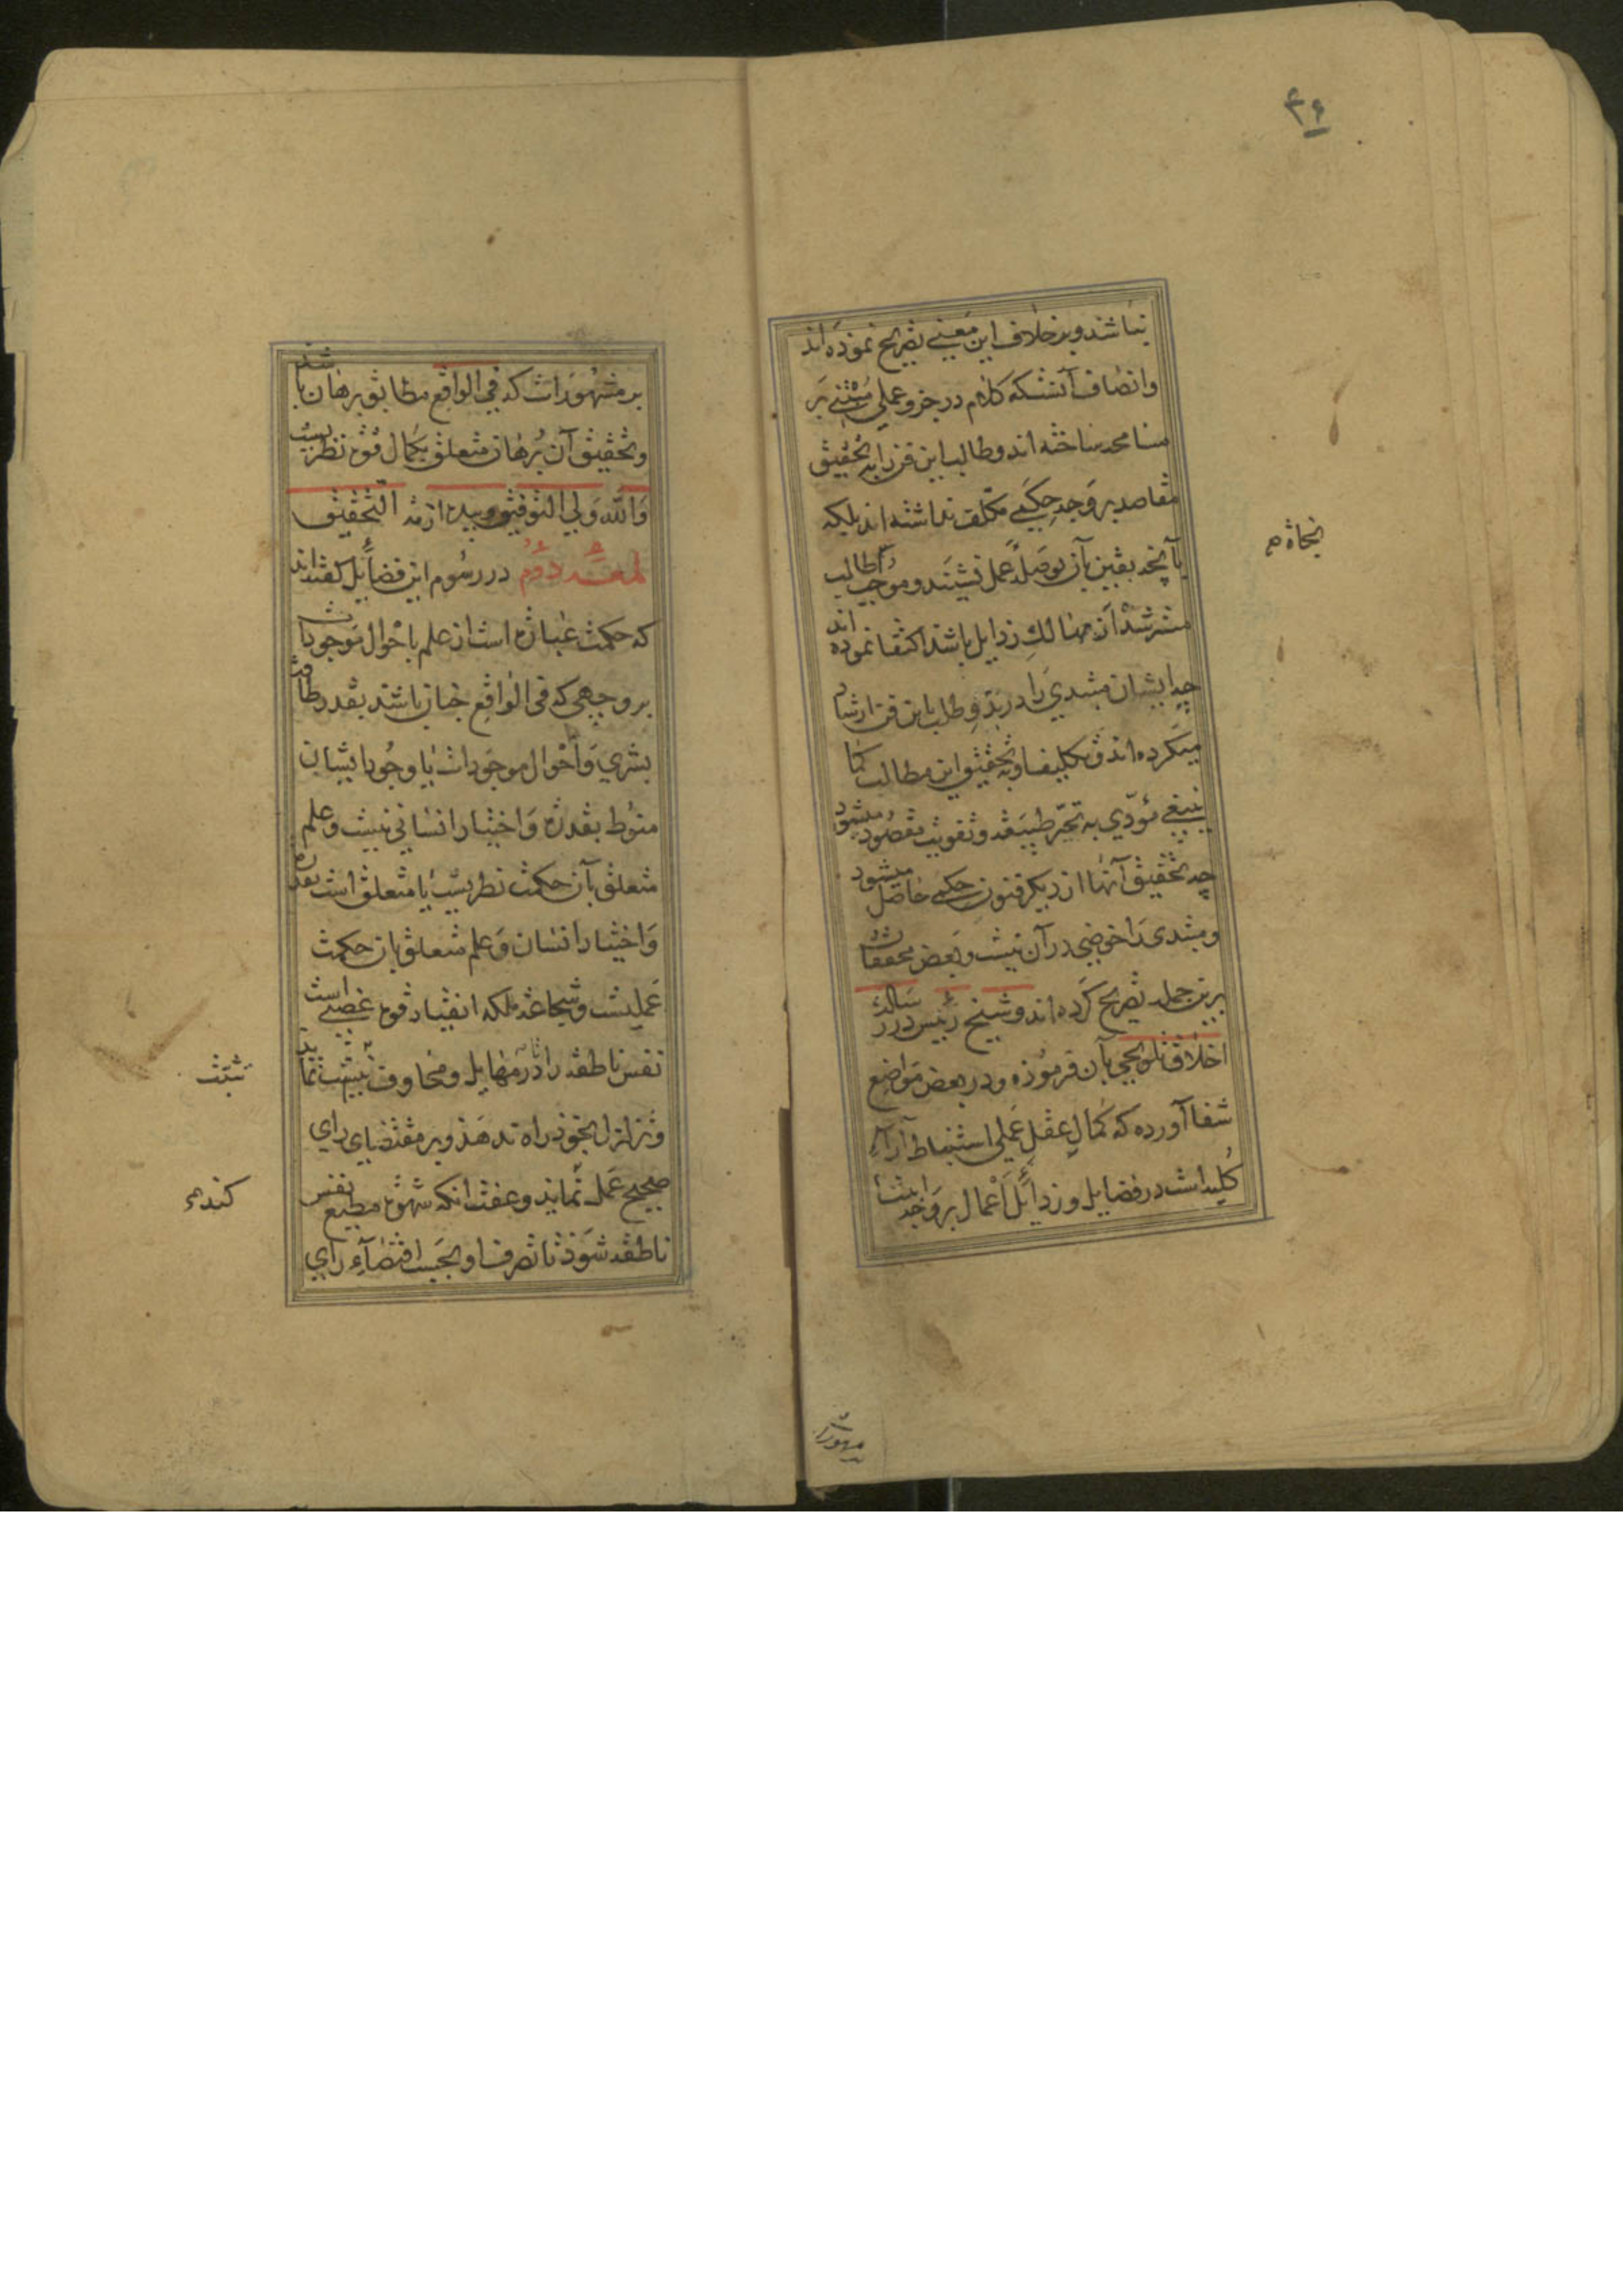 ۴۶
نباشند و بر خلاف این معنی تصریح نموده اند
و انصاف آنستکه کلام در جزو عملی مبتنی بر
مسامحه ساخته اند و طالب این فن را به تحقیق
مقاصد بر وجه حکمی مکلف نداشته اند بلکه
بآنچه یقین بآن وصله عمل نشینند و موجب طالب
نجاة م
مسترشد از مهالک رذایل باشد اکتفا نموده اند
چه ایشان مبتدی را در بدو طلب باین فن ارشاد
میکرده اند و تکلیف او به تحقیق این مطالب کما
ینبغی مؤدی به تحیر طبیعة و تفویت مقصود میشود
چه تحقیق آنها از دیگر فنون حکمی حاصل میشود
و مبتدی را خوضی در آن نیست و بعض محققان
برین جمله تصریح کرده اند و شیخ رئیس در رسالهٔ
اخلاق تلویحی بآن فرموده و در بعض مواضع
شفا آورده که کمال عقل عملی استنباط آراء
کلیه است در فضایل و رذائل اعمال بر وجه ابتنا
بر مشهورات
بر مشهورات که فی الواقع مطابق برهان باشد
و تحقیق آن برهان متعلق بکمال قوة نظریست
والله ولی التوفیق وبیده ازمة التحقیق
لمعهٔ دوم در رسوم این فضائل گفته اند
که حکمت عبارة است از علم باحوال موجودات
بر وجهی که فی الواقع چنان باشند بقدر طاقت
بشری و احوال موجودات یا وجود ایشان
منوط بقدرة و اختیار انسانی نیست و علم
متعلق بآن حکمت نظریست یا متعلق است بقدرة
و اختیار انسان و علم متعلق بان حکمت
عملیست و شجاعة ملکه انقیاد قوة غضبی است
نفس ناطقه را تا در مهایل و مخاوف تثبت نماید
تثبت
و تزلزل بخود راه ندهد و بر مقتضای رای
صحیح عمل نماید و عفت انکه شهوة مطیع نفس
کند م
ناطقه شود تا تصرف او بحسب اقتضاء رای